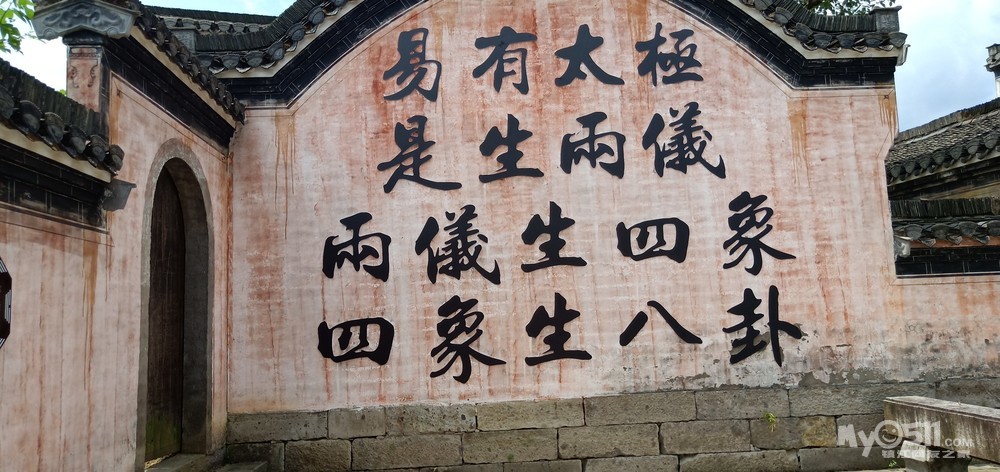 易有太極
是生兩儀
兩儀生四象
四象生八卦
My0511.COM
镇江网友之家